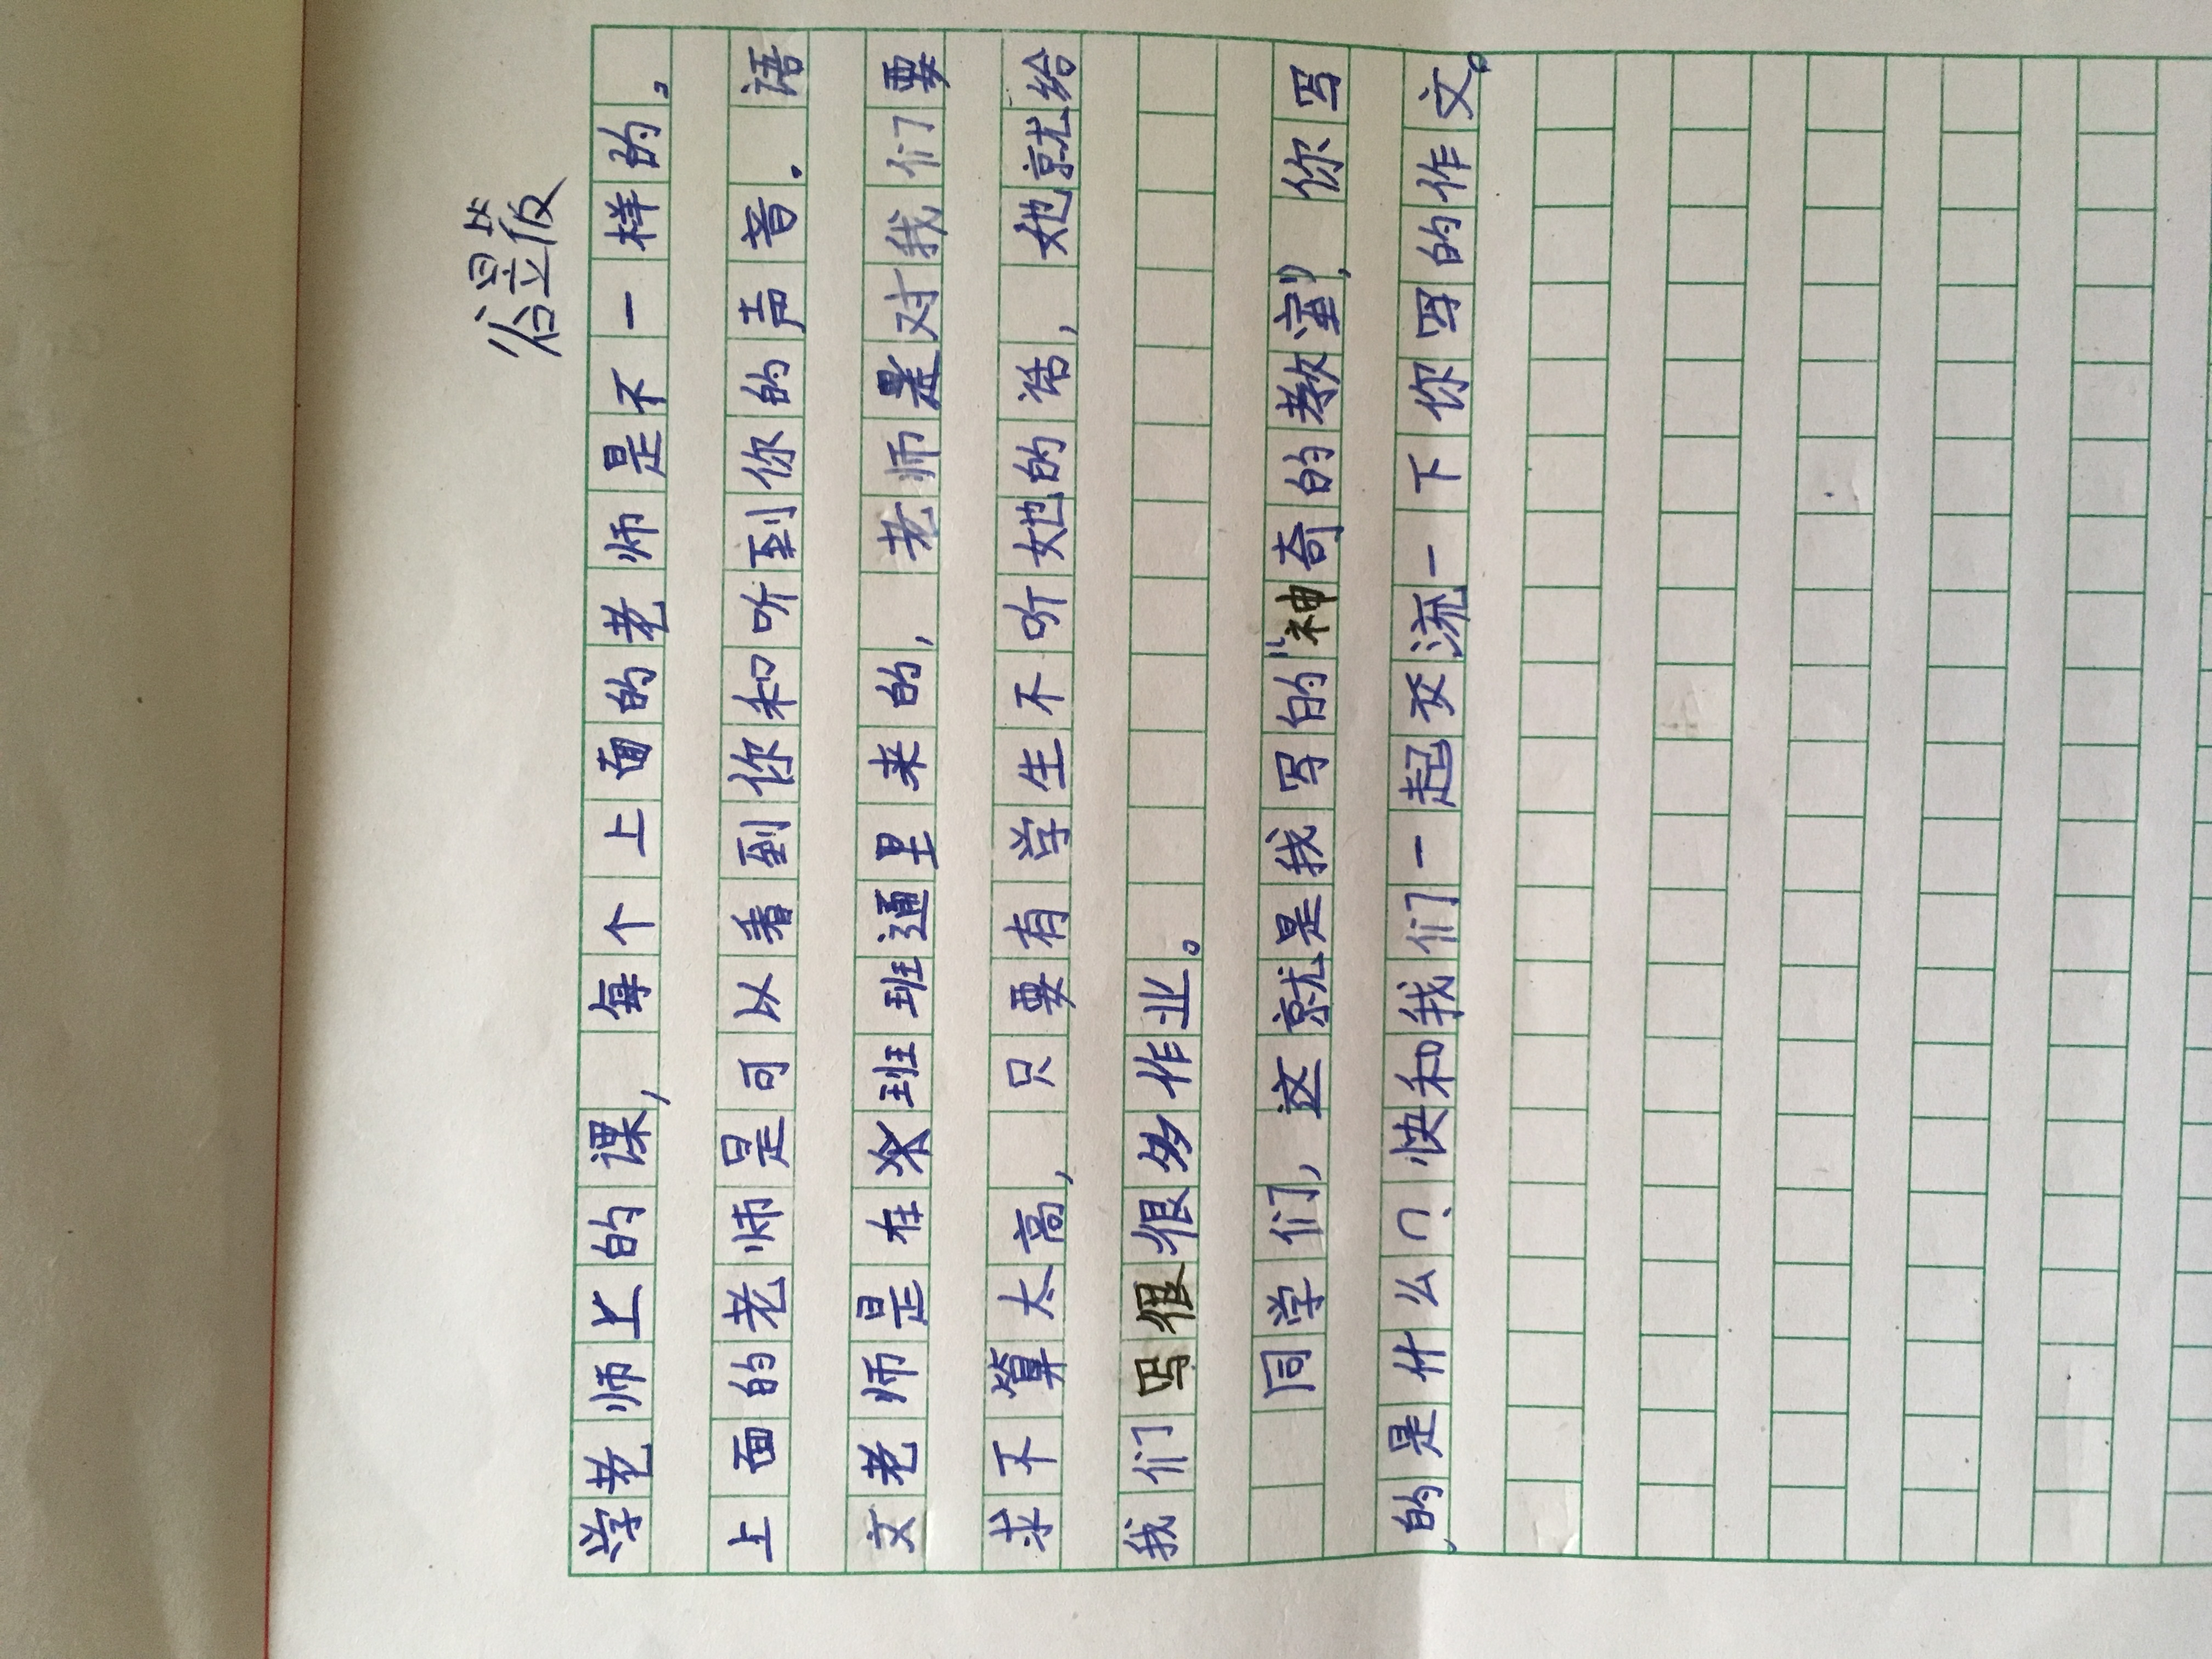 谷昱
学老师上的课，每个上面的老师是不一样的。
上面的老师是可以看到你和听到你的声音。语
文老师是在班班通里来的，老师是对我们要
求不算太高，只要有学生不听她的话，她就给
我们写很很多作业。
同学们，这就是我写的“神奇的教室”，你写
的是什么？快和我们一起交流一下你写的作文。